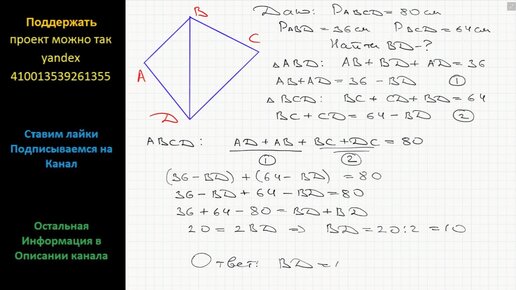 Поддержать
проект можно так
yandex
410013539261355
Ставим лайки
Подписываемся на
Канал
Остальная
Информация в
Описании канала
A
B
C
D
Дано: P_ABCD = 80 см
P_ABD = 36 см P_BCD = 64 см
Найти BD - ?
△ABD: AB + BD + AD = 36
AB + AD = 36 - BD ①
△BCD: BC + CD + BD = 64
BC + CD = 64 - BD ②
ABCD: AD + AB + BC + DC = 80
① ②
(36 - BD) + (64 - BD) = 80
36 - BD + 64 - BD = 80
36 + 64 - 80 = BD + BD
20 = 2BD ⇒ BD = 20 : 2 = 10
Ответ: BD = 1